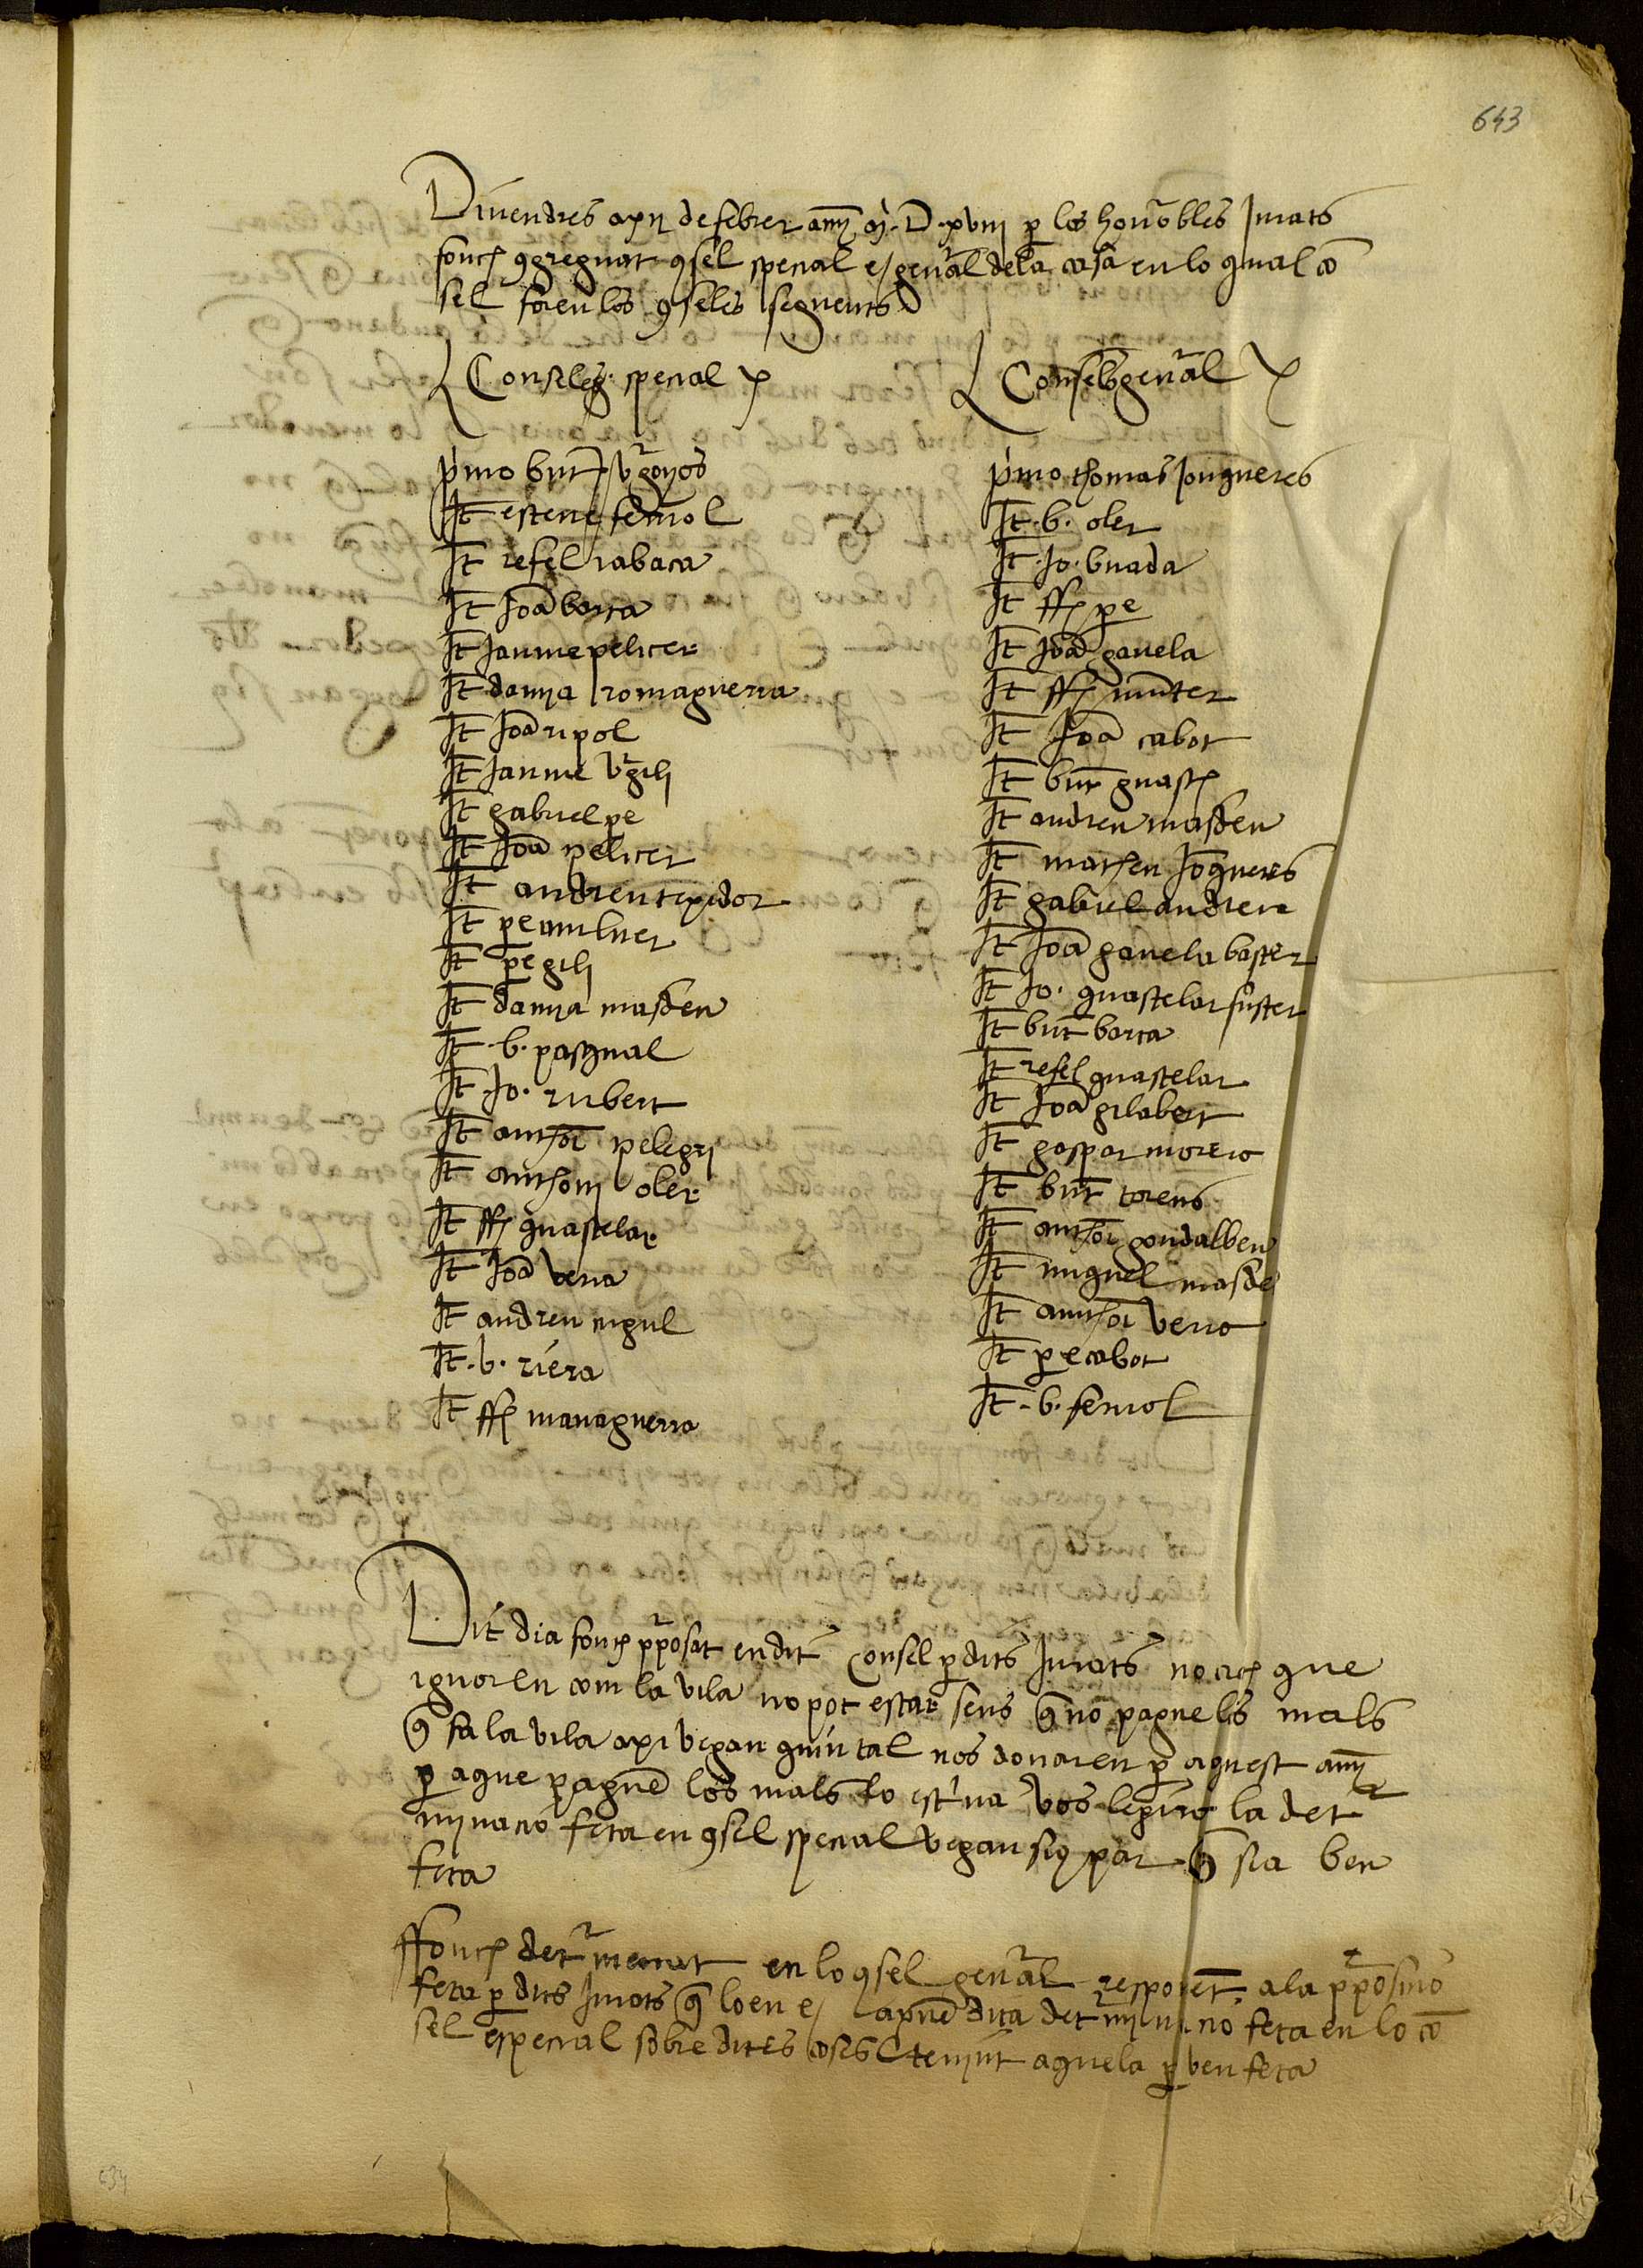 643
Divendres a xii de febrer any M. D. xviii per los honorables Jurats
fonch congreguat consel special e general dela casa en lo qual con
sel foren los conseles seguents
Conseles special
primo bnt
It esteve fenol
It rafel rabaca
It Joan barca
It Jaume pelicer
It damia romaguera
It Joan ripol
It Jaume vrgili
It gabriel pe
It Joan pelicer
It andreu texidor
It pe amluer
It pe gili
It damia masdeu
It .b. pasqual
It Jo. rubert
It anthoi pelegri
It anthoni oler
It ff guastelar
It Joan vena
It andreu
It .b. riera
It ff managuerra
Consel general
primo thomas Jongueres
It .b. oler
It .Jo. buada
It ff pe
It Joan gavela
It ff munter
It Joan cabot
It bnt guasch
It andreu masdeu
It matheu Jongueres
It gabriel andreu
It Joan gavela baster
It Jo. guastelar fuster
It bnt barca
It rafel guastelar
It Joan gilabert
It gaspar morero
It bnt torens
It anthoi gondalbeu
It miquel masde
It anthoi verro
It pe cabot
It .b. fenol
Dit dia fonch proposat en dit Consel per dits Jurats no crech que
ignoren com la vila no pot estar sens que no pague los mals
que fa la vila axi vegan quin tal nos donaren per aquest any
per a que paguem los mals lo escriva vos legira la deter
minacio feta en consel special vegan si par que sia ben
feta
Ffonch determenat en lo consel general responent a la proposicio
feta per dits Jurats que loen e aproven dita determinacio feta en lo con
sel especial sobre dites coses tenint aquela per ben feta
634